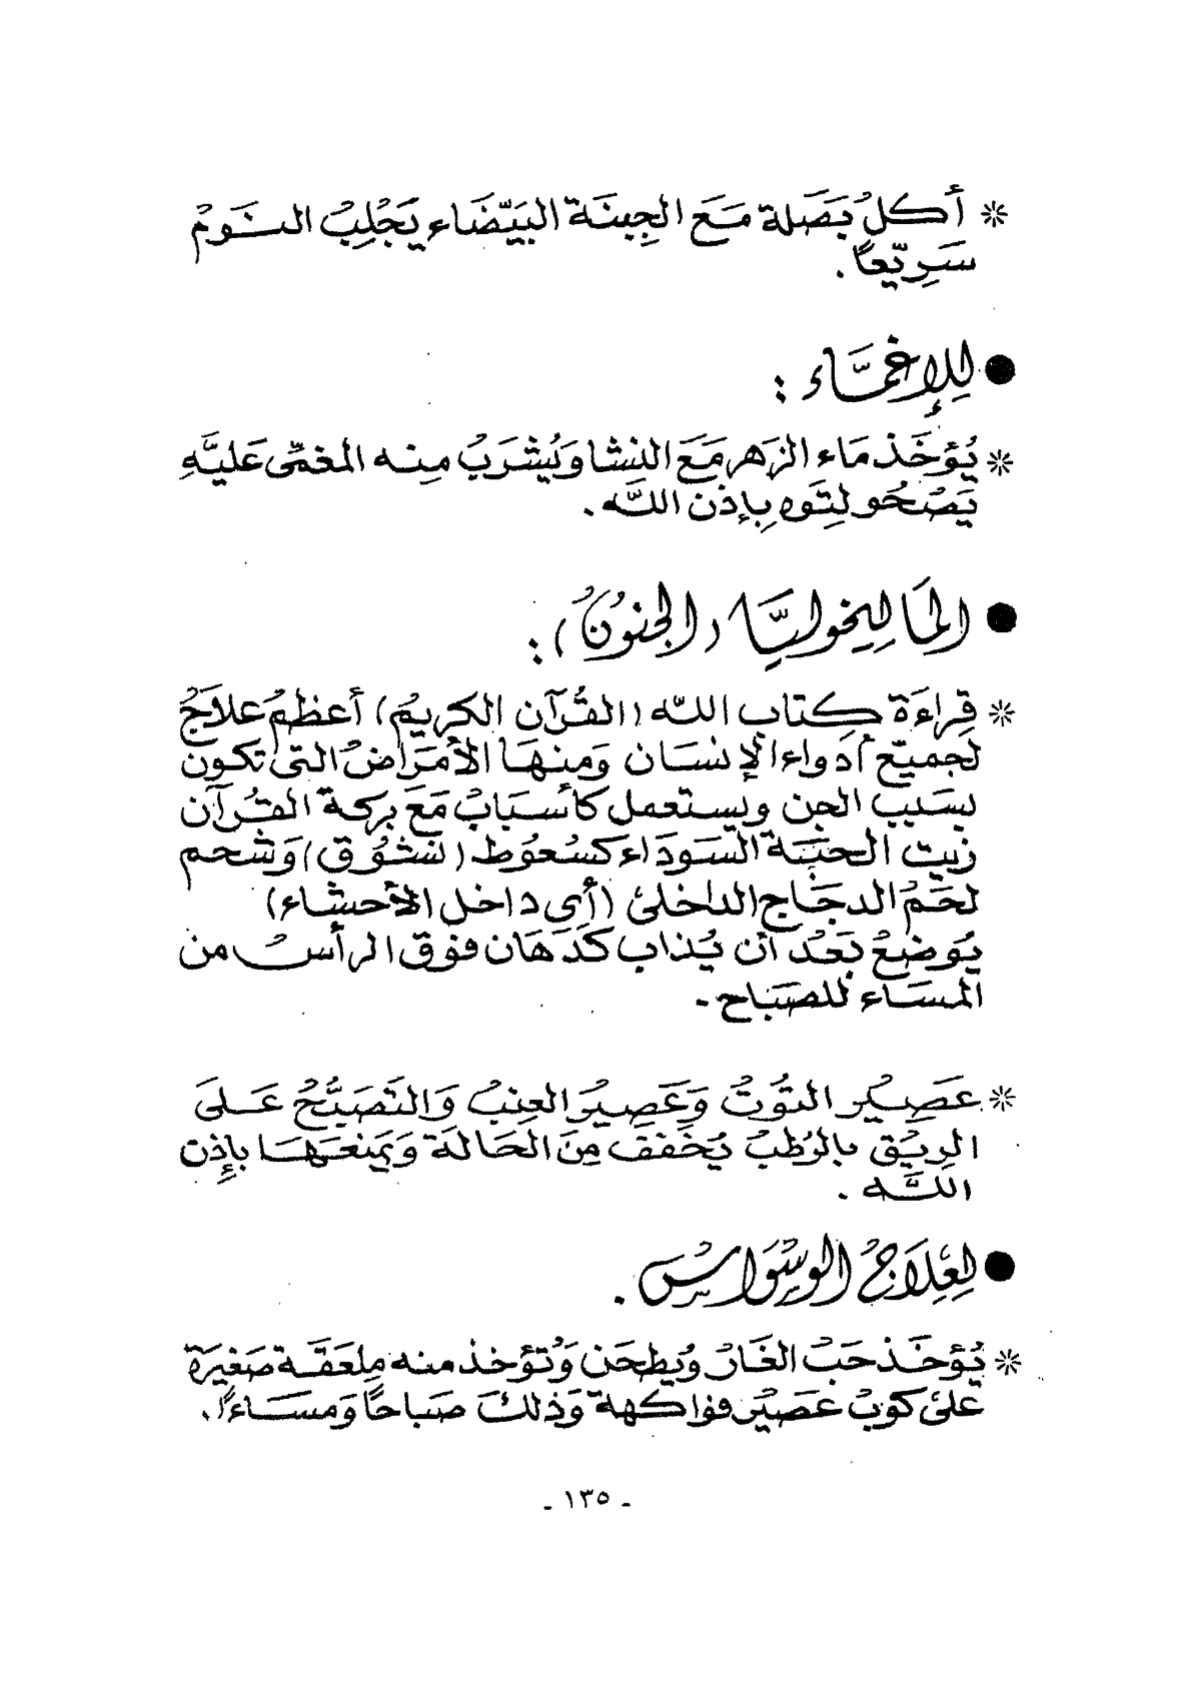 * أكلُ بَصَلة مَعَ الجِبنَة البَيّضَاء يَجْلِبُ النَومُ
سَرِيّعاً .
● لِلإِغمَّاء :
* يُؤخَذ مَاء الزَهر مَعَ النشا وَيُشرَبُ مِنه المغمّى عَليَّهِ
يَصْحُو لِتَوه بِإذن اللَّه .
● المَالِيخوليَّا (الجنوُنُ) :
* قِراءَة كِتاب اللّه (القُرآن الكريمُ) أعظمُ علاجُ
لجميّع أدواء الإنسَان وَمنهَا الأمرَاضُ التى تكون
بسَبب الجن ويستعمل كأسبَابُ مَعَ بركة القُرآن
زيت الحبَّة السَودَاء كسُعوُط (نشوُق) وَشحم
لحَمُ الدجَاج الداخلىُ (أي داخل الأحشاء)
يُوَضعُ بَعْدَ أن يُذاب كَدهَان فوق الرأسُ من
المسَاء للصَبَاح -
* عَصِيُر التوُتُ وَعَصِيرُ العِنبُ وَالتَصَبُّحُ عَلىَ
الرِيُق بالرُطبُ يُخَففُ مِنَ الحَالَة وَيَمنعَهَا بإِذن
اللَّه .
● لِعِلَاجُ الوسْوَاسُ .
* يُؤخَذ حَبُ الغَارُ وَيُطحَن وَتُؤخذ منه مِلعَقَة صَغيرَة
علىَ كوَبُ عَصِيُر فوَاكهة وَذلكَ صَباحًا وَمسَاءً .
- ١٣٥ -